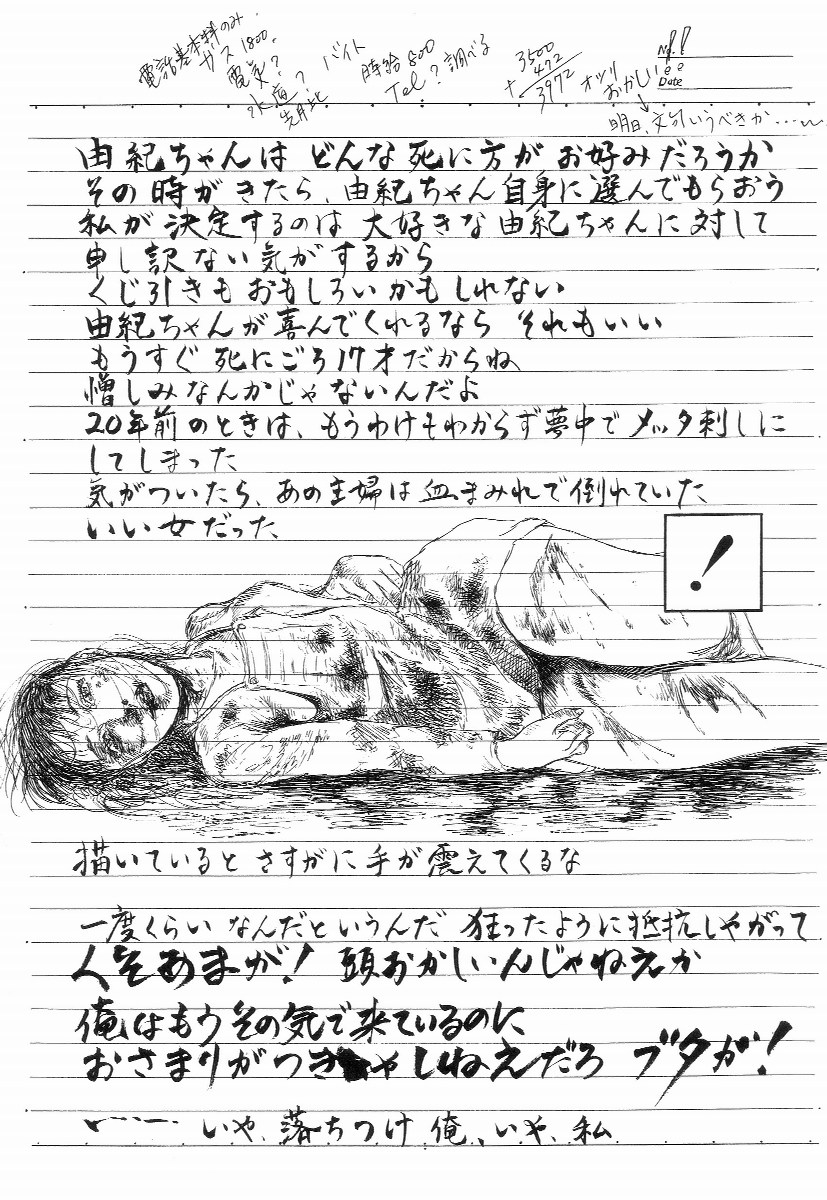 電話基本料のみ
ガス 1800.
電気?
水道?
先月比
バイト
時給 800
Tel? 調べる
3500
+ 472
3972
オツリ
おかしい!!
No.
Date
明日、文句いうべきか……
由紀ちゃんは どんな死に方が お好みだろうか
その時がきたら、由紀ちゃん自身に選んでもらおう
私が決定するのは 大好きな由紀ちゃんに対して
申し訳ない気がするから
くじ引きもおもしろいかもしれない
由紀ちゃんが喜んでくれるなら それもいい
もうすぐ 死にごろ17才だからね
憎しみなんかじゃないんだよ
20年前のときは、もうわけもわからず夢中で メッタ刺しに
してしまった
気がついたら、あの主婦は血まみれで倒れていた
いい女だった
!
描いていると さすがに手が震えてくるな
一度くらい なんだというんだ 狂ったように抵抗しやがって
くそあまが! 頭おかしいんじゃねえか
俺はもうその気で来ているのに
おさまりがつきゃしねえだろ ブタが!
……いや、落ちつけ 俺、いや、私